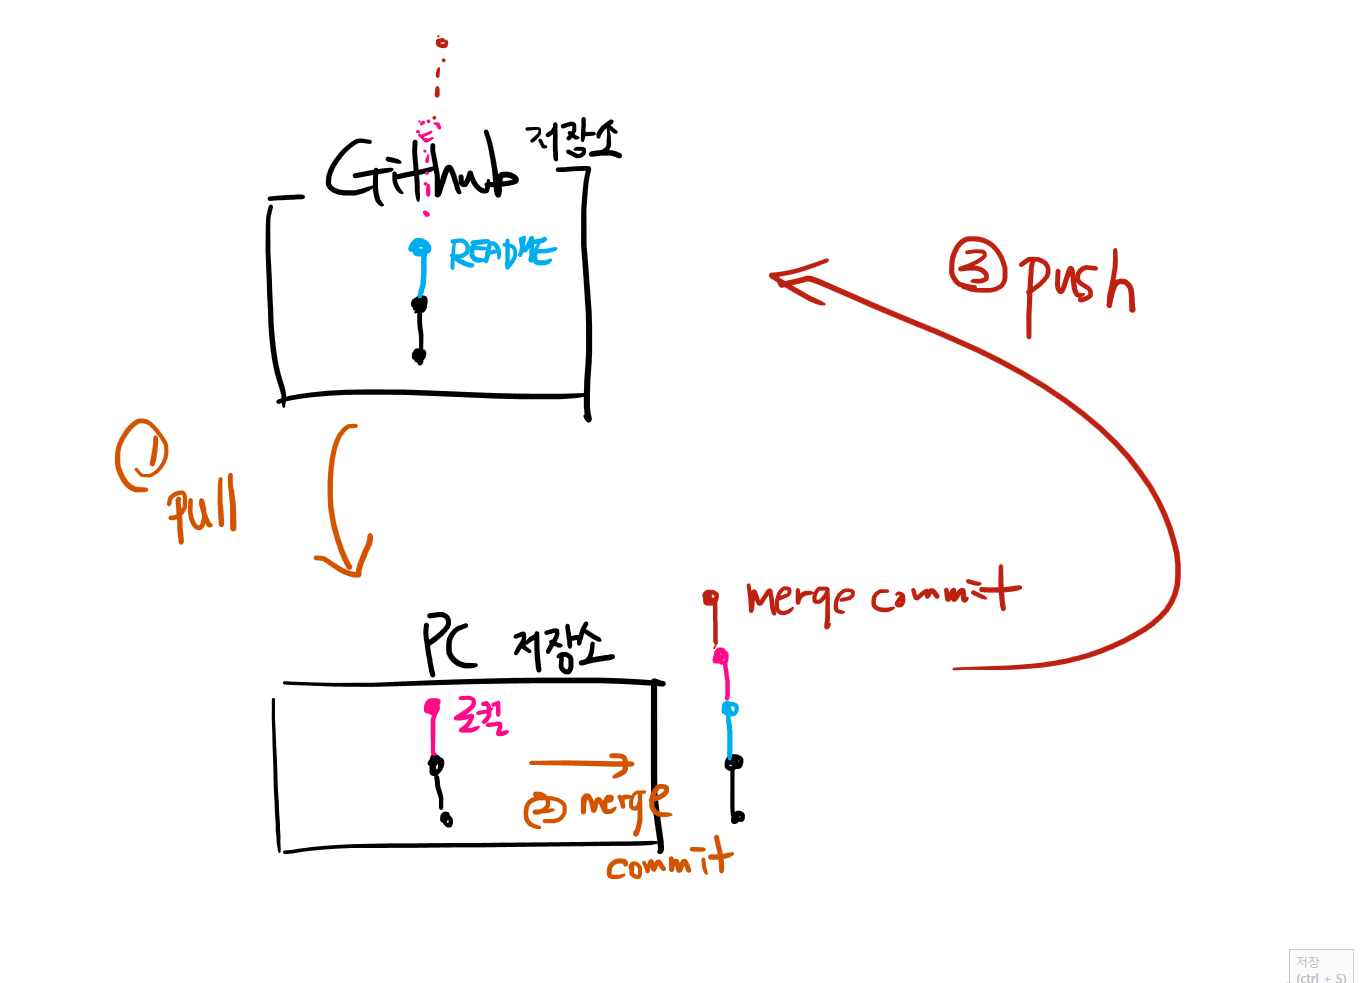 Github 저장소
README
③ push
① pull
merge commit
PC 저장소
로컬
② merge
commit
저장
(ctrl + S)